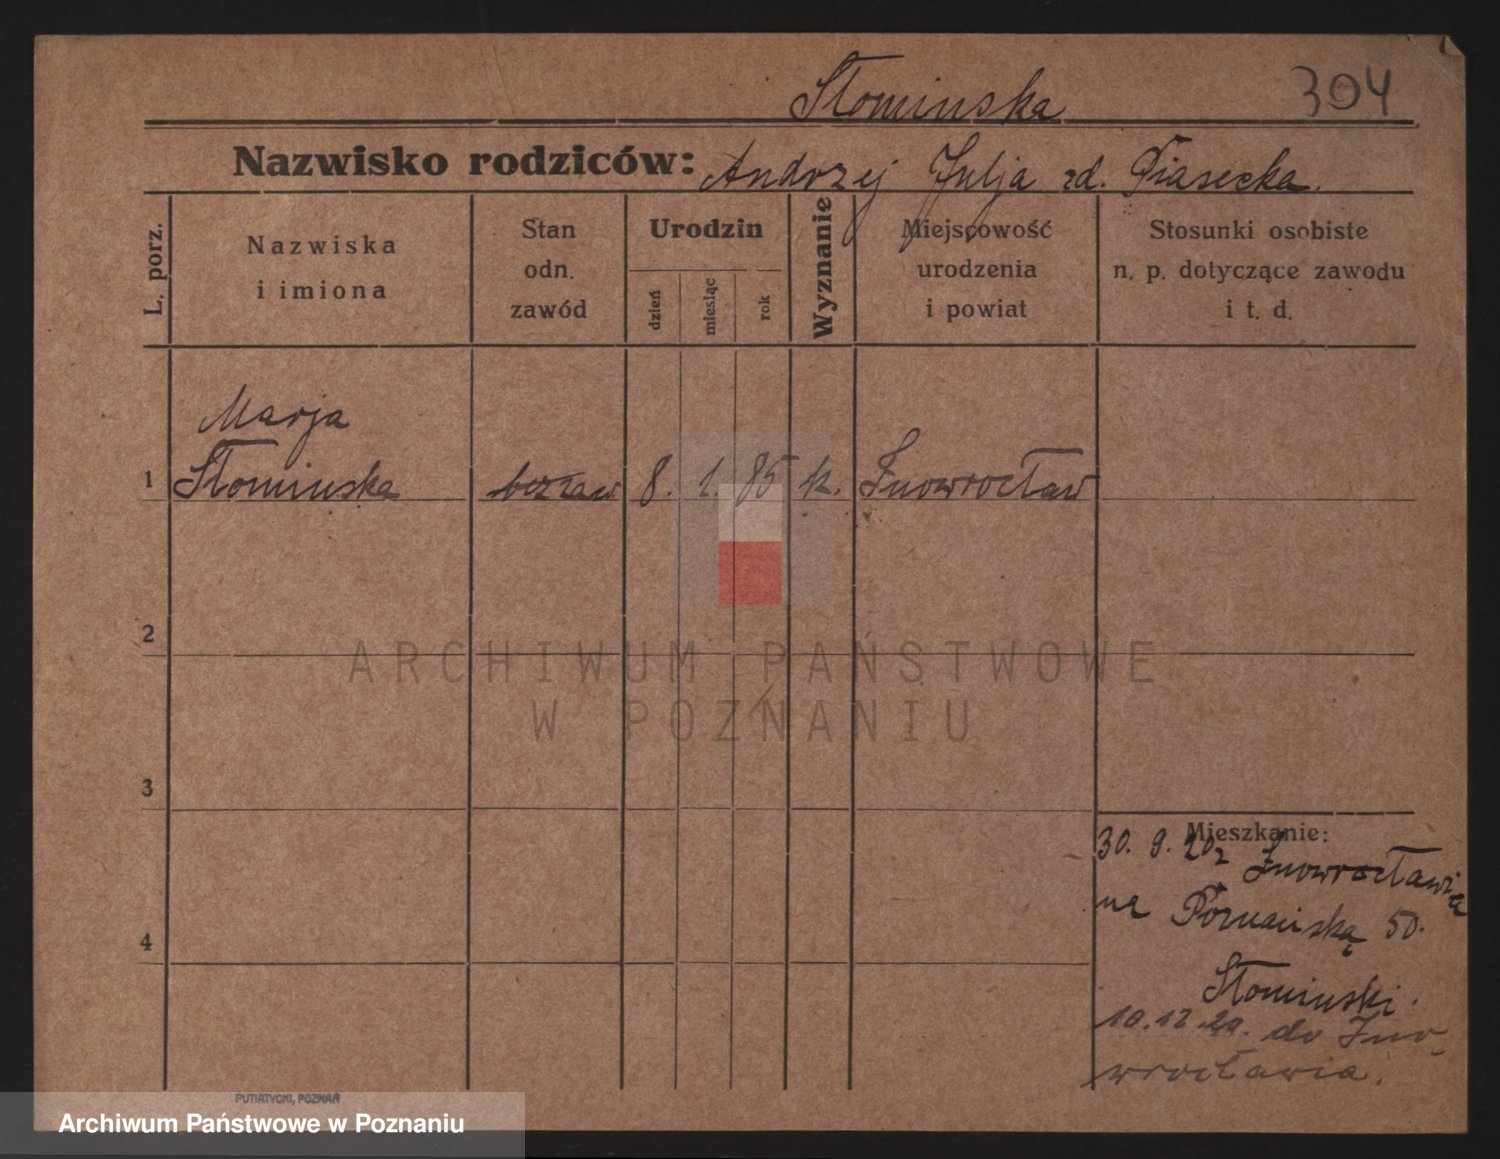 Słominska 304
Nazwisko rodziców: Andrzej Julja zd. Piasecka.
L. porz.
Nazwiska
i imiona
Stan
odn.
zawód
Urodzin
dzień
miesiąc
rok
Wyznanie
Miejscowość
urodzenia
i powiat
Stosunki osobiste
n. p. dotyczące zawodu
i t. d.
Marja
1 Słominska bez zaw. 8. 1. 85 k. Inowrocław
2
3
4
Mieszkanie:
30. 9. 20 z Inowrocławia
na Poznańską 50.
Słominski.
10.12.20. do Ino-
wrocławia.
ARCHIWUM PAŃSTWOWE
W POZNANIU
PUTIATYCKI, POZNAŃ
Archiwum Państwowe w Poznaniu